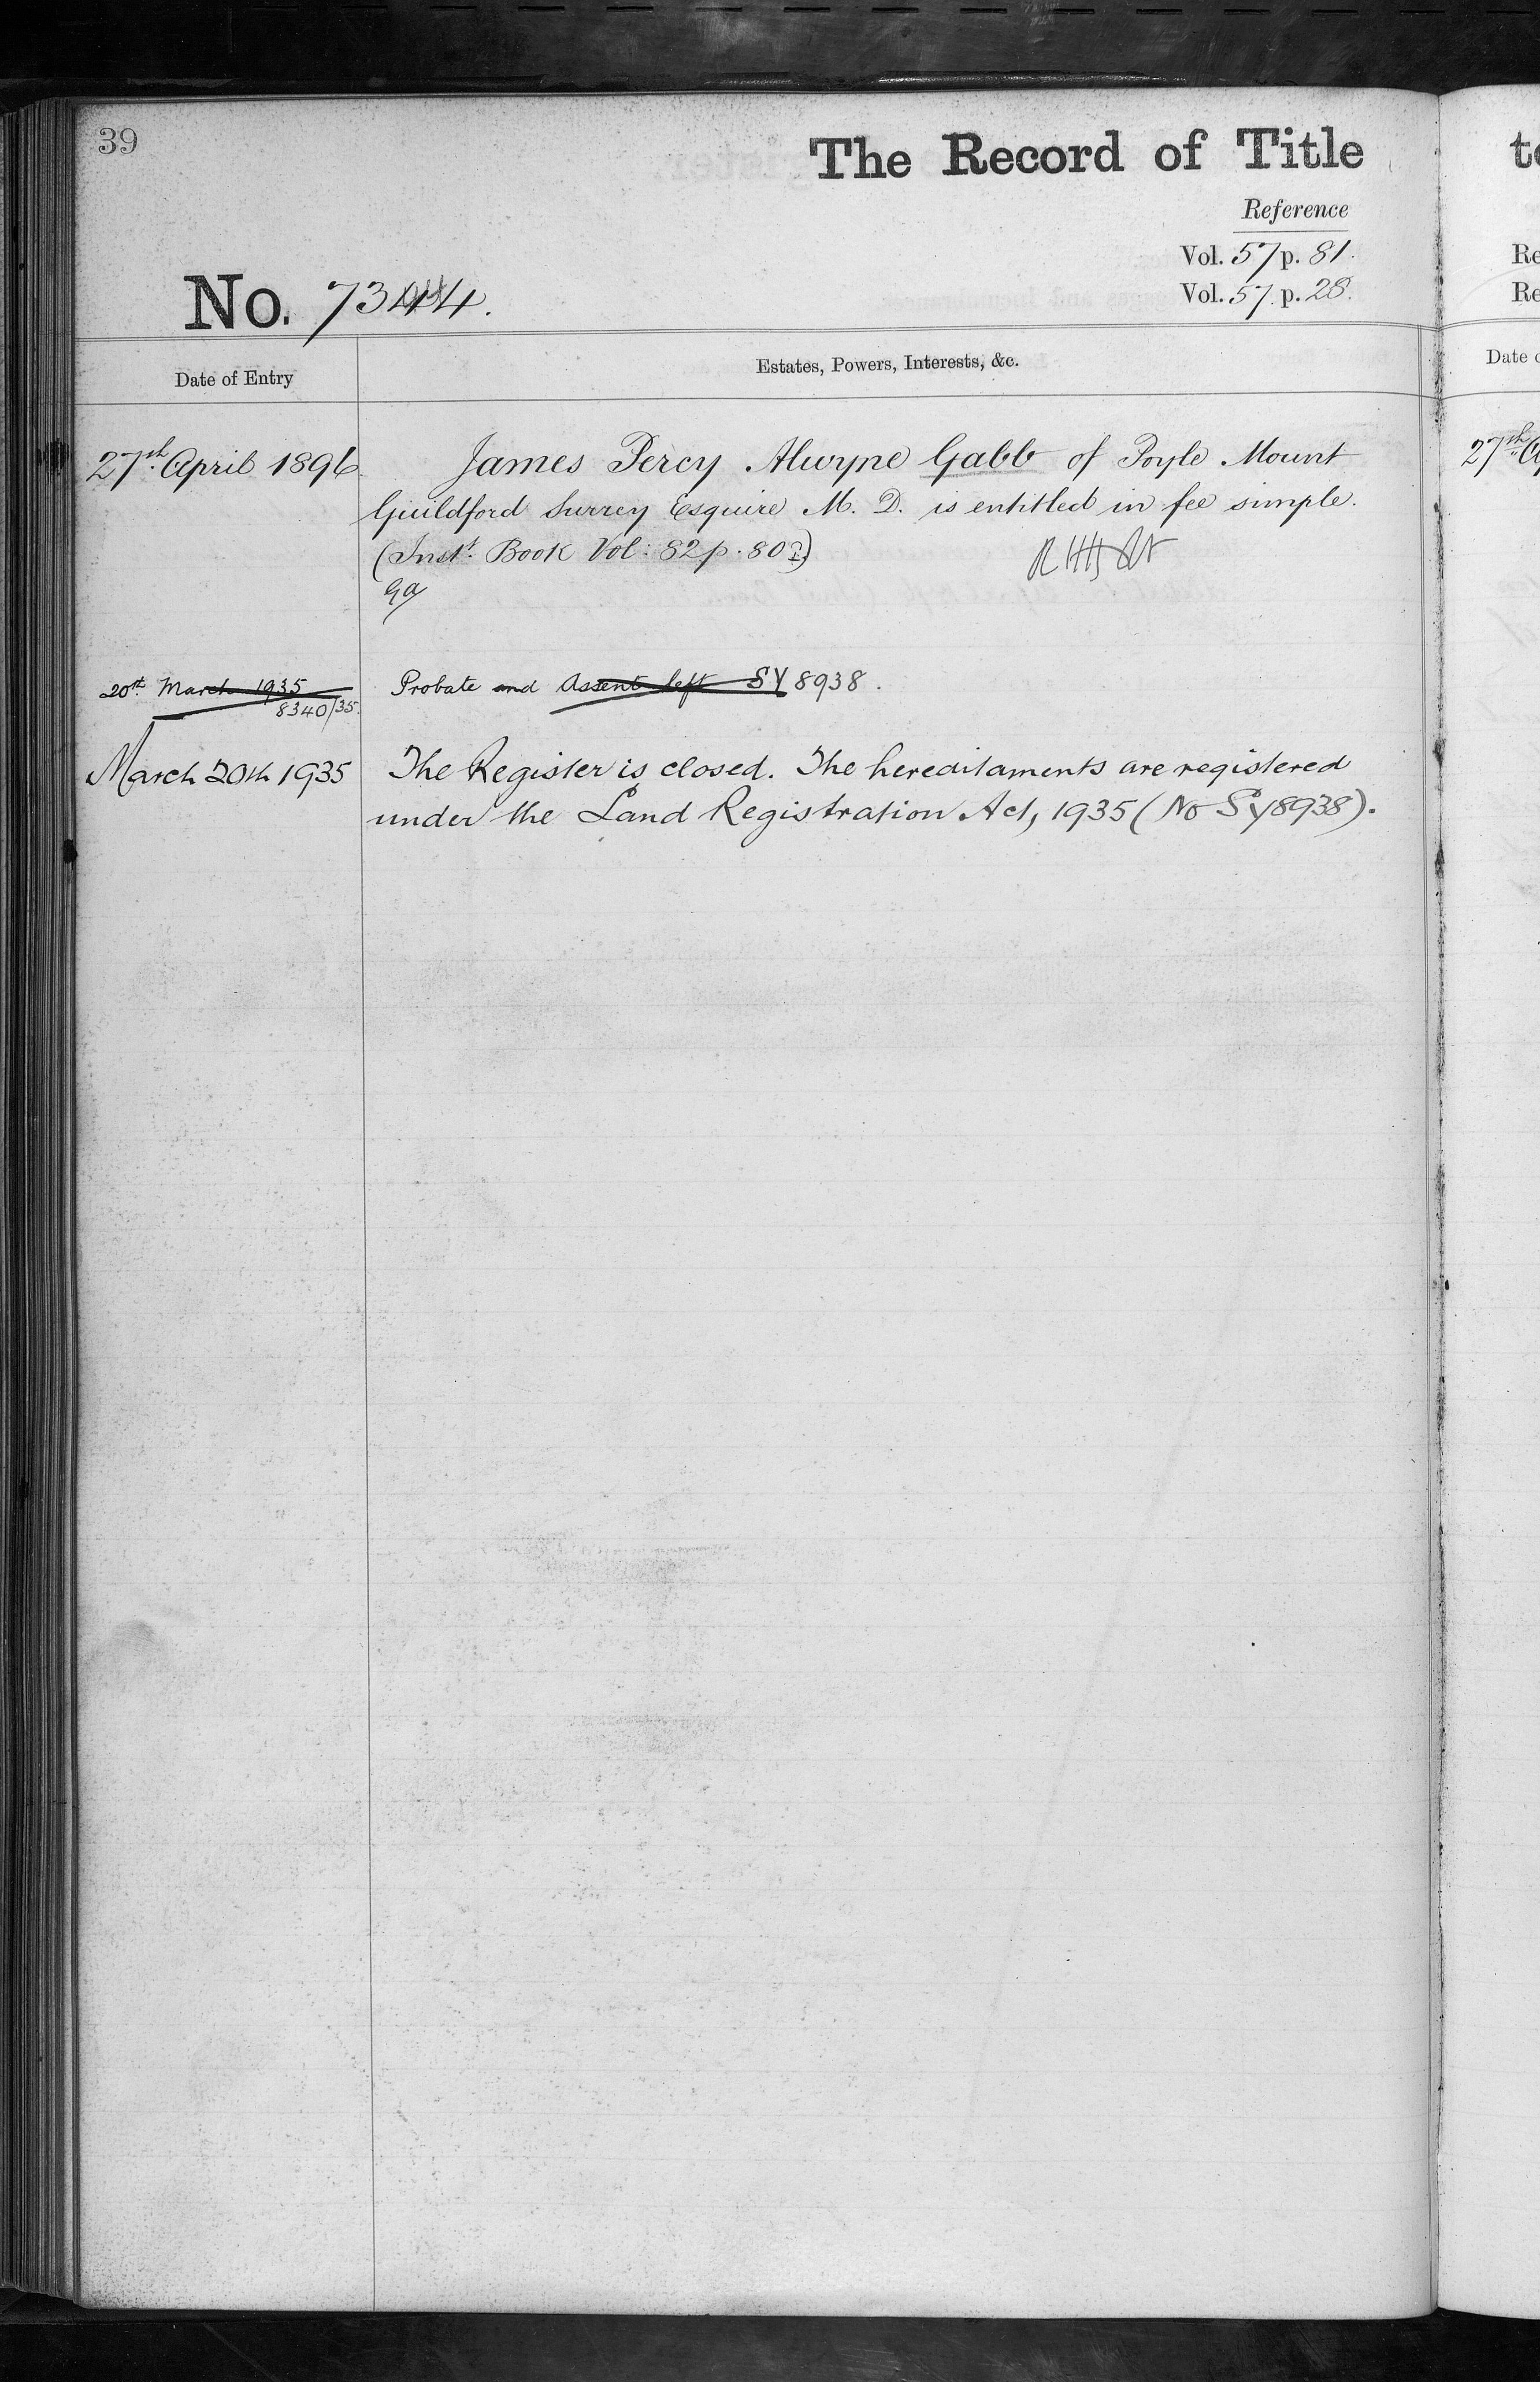 39
The Record of Title
Reference
Vol. 57 p. 81.
Vol. 57. p. 28.
No.
Date of Entry
Estates, Powers, Interests, &c.
27th. April 1896
James Percy Alwyne Gabb of Poyle Mount
Guildford Surrey Esquire M. D. is entitled in fee simple.
(Inst. Book Vol: 82 p.
20th March 1935
8340/35.
Probate and Assent left SY 8938.
March 20th 1935
The Register is closed. The hereditaments are registered
under the Land Registration Act, 1935 (No SY8938).
Date
27th